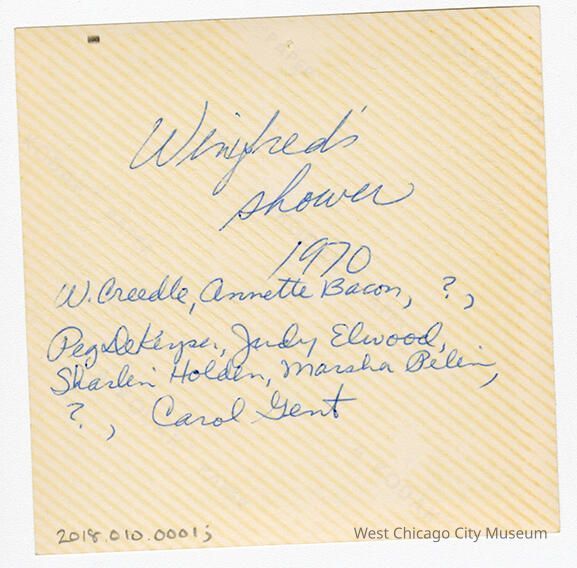 Winifred's
shower
1970
W. Creedle, Annette Bacon, ?,
Peg DeKeyser, Judy Elwood,
Sharlin Holden, Marsha Pelin,
?, Carol Gent
2018.010.0001j
West Chicago City Museum